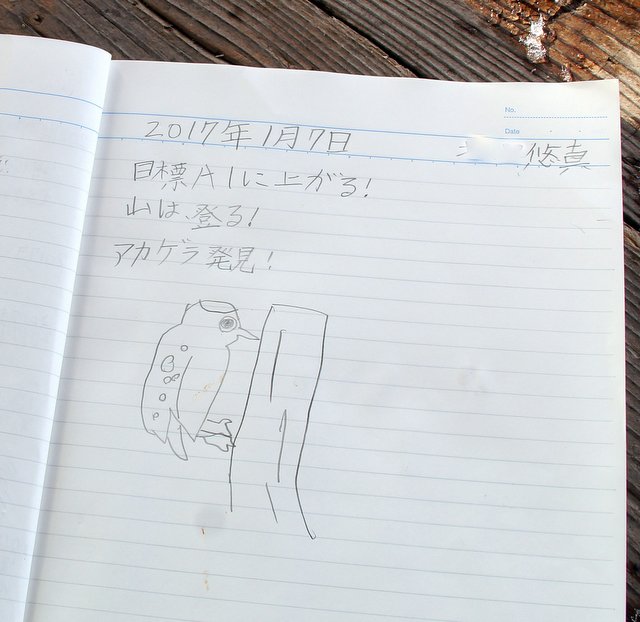 No.
Date
2017年1月7日
悠真
目標A1に上がる!
山は、登る!
アカゲラ発見!